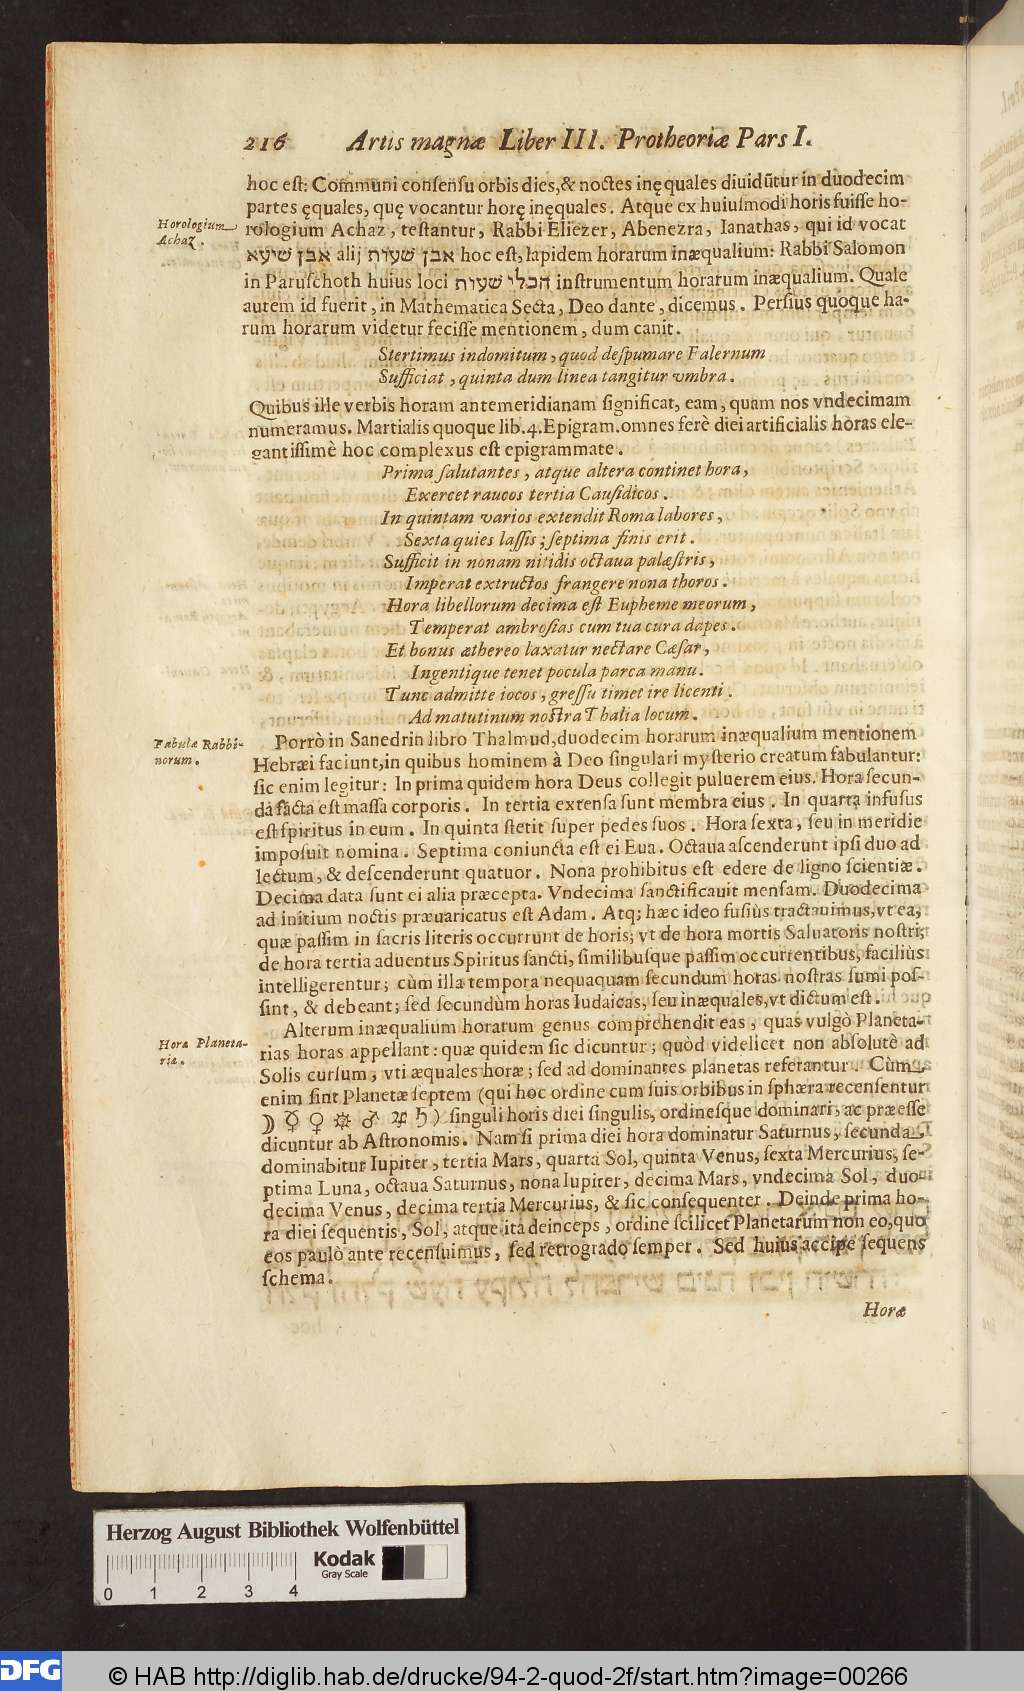 216 Artis magnæ Liber III. Protheoriæ Pars I.
hoc est: Communi consensu orbis dies, & noctes inęquales diuidũtur in duodecim
partes ęquales, quę vocantur horę inęquales. Atque ex huiusmodi horis fuisse ho-
Horologium Achaz.
rologium Achaz, testantur, Rabbi Eliezer, Abenezra, Ianathas, qui id vocat
אבן שיעא alij אבן שעות hoc est, lapidem horarum inæqualium: Rabbi Salomon
in Paruschoth huius loci הכלי שעות instrumentum horarum inæqualium. Quale
autem id fuerit, in Mathematica Secta, Deo dante, dicemus. Persius quoque ha-
rum horarum videtur fecisse mentionem, dum canit.
Stertimus indomitum, quod despumare Falernum
Sufficiat, quinta dum linea tangitur vmbra.
Quibus ille verbis horam antemeridianam significat, eam, quam nos vndecimam
numeramus. Martialis quoque lib.4. Epigram. omnes ferè diei artificialis horas ele-
gantissimè hoc complexus est epigrammate.
Prima salutantes, atque altera continet hora,
Exercet raucos tertia Causidicos.
In quintam varios extendit Roma labores,
Sexta quies lassis; septima finis erit.
Sufficit in nonam nitidis octaua palæstris,
Imperat extructos frangere nona thoros.
Hora libellorum decima est Eupheme meorum,
Temperat ambrosias cum tua cura dapes.
Et bonus æthereo laxatur nectare Cæsar,
Ingentique tenet pocula parca manu.
Tunc admitte iocos, gressu timet ire licenti.
Ad matutinum nostra Thalia Iocum.
Fabulæ Rabbinorum.
Porrò in Sanedrin libro Thalmud, duodecim horarum inæqualium mentionem
Hebræi faciunt, in quibus hominem à Deo singulari mysterio creatum fabulantur:
sic enim legitur: In prima quidem hora Deus collegit puluerem eius. Hora secun-
da facta est massa corporis. In tertia extensa sunt membra eius. In quarta infusus
est spiritus in eum. In quinta stetit super pedes suos. Hora sexta, seu in meridie
imposuit nomina. Septima coniuncta est ei Eua. Octaua ascenderunt ipsi duo ad
lectum, & descenderunt quatuor. Nona prohibitus est edere de ligno scientiæ.
Decima data sunt ei alia præcepta. Vndecima sanctificauit mensam. Duodecima
ad initium noctis præuaricatus est Adam. Atq; hæc ideo fusiùs tractauimus, vt ea,
quæ passim in sacris literis occurrunt de horis; vt de hora mortis Saluatoris nostri,
de hora tertia aduentus Spiritus sancti, similibusque passim occurrentibus, faciliùs
intelligerentur; cùm illa tempora nequaquam secundum horas nostras sumi pos-
sint, & debeant; sed secundùm horas Iudaicas, seu inæquales, vt dictum est.
Alterum inæqualium horarum genus comprehendit eas, quas vulgò Planeta-
Horæ Planetariæ.
rias horas appellant: quæ quidem sic dicuntur; quòd videlicet non absolutè ad
Solis cursum, vti æquales horæ; sed ad dominantes planetas referantur. Cùm
enim sint Planetæ septem (qui hoc ordine cum suis orbibus in sphæra recensentur
☽ ☿ ♀ ☼ ♂ ♃ ♄) singuli horis diei singulis, ordinesque dominari, ac præesse
dicuntur ab Astronomis. Nam si prima diei hora dominatur Saturnus, secunda
dominabitur Iupiter, tertia Mars, quarta Sol, quinta Venus, sexta Mercurius, se-
ptima Luna, octaua Saturnus, nona Iupiter, decima Mars, vndecima Sol, duo-
decima Venus, decima tertia Mercurius, & sic consequenter. Deinde prima ho-
ra diei sequentis, Sol, atque ita deinceps, ordine scilicet Planetarum non eo, quo
eos paulò ante recensuimus, sed retrogrado semper. Sed huius accipe sequens
schema.
Horæ
Herzog August Bibliothek Wolfenbüttel
Kodak
Gray Scale
0 1 2 3 4
DFG
© HAB http://diglib.hab.de/drucke/94-2-quod-2f/start.htm?image=00266